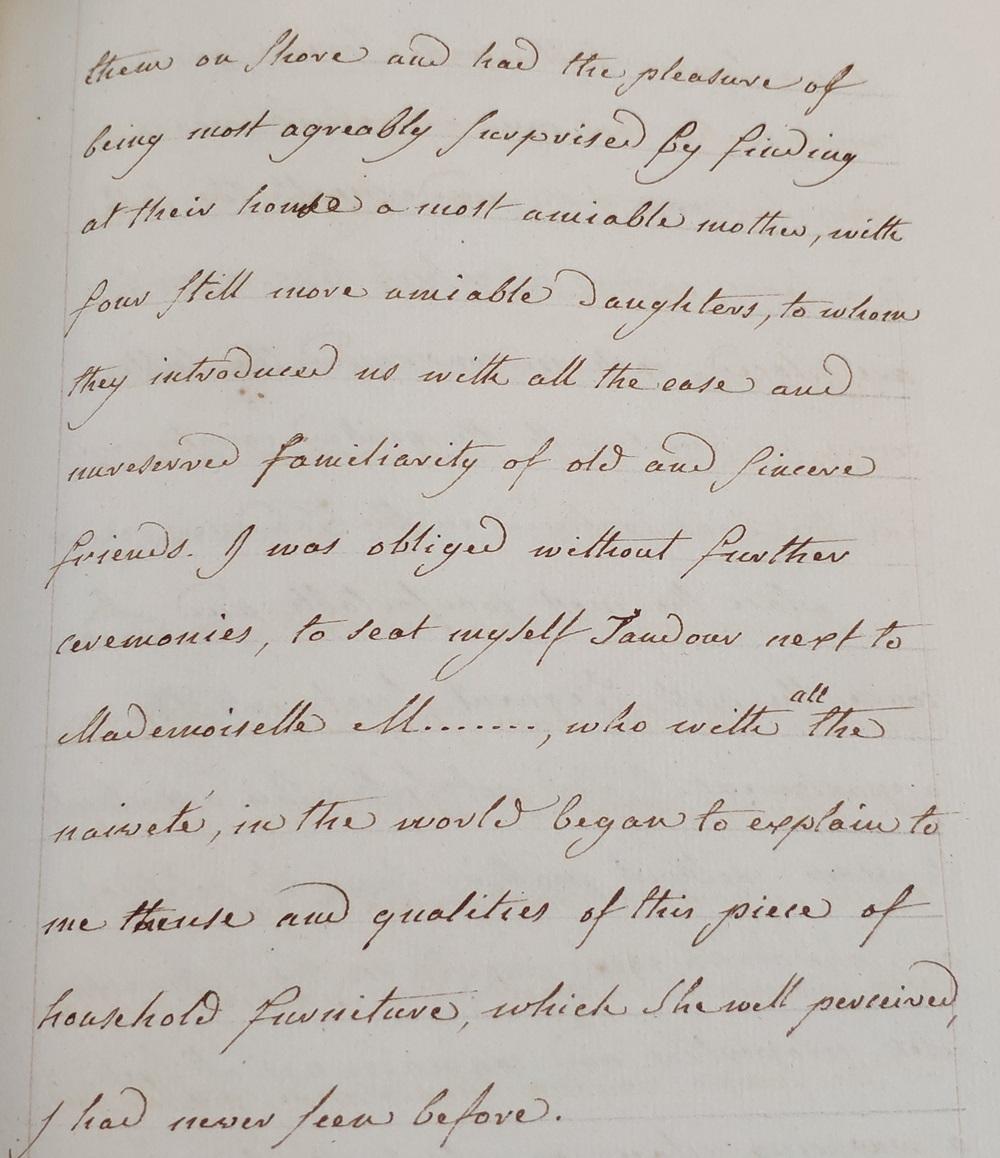 them on Shore and had the pleasure of
being most agreably surprised by finding
at their house a most amiable mother, with
four still more amiable daughters, to whom
they introduced us with all the ease and
unreserved familiarity of old and sincere
friends. I was obliged without further
ceremonies, to seat myself Tandour next to
Mademoiselle M........, who with all the
naiveté, in the world began to explain to
me the use and qualities of this piece of
household furniture, which She well perceived,
I had never seen before.